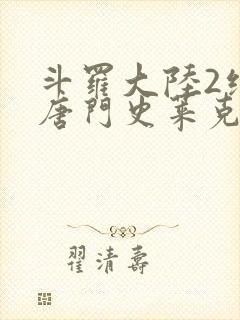 斗羅大陸2
唐門史萊克
翟清壽